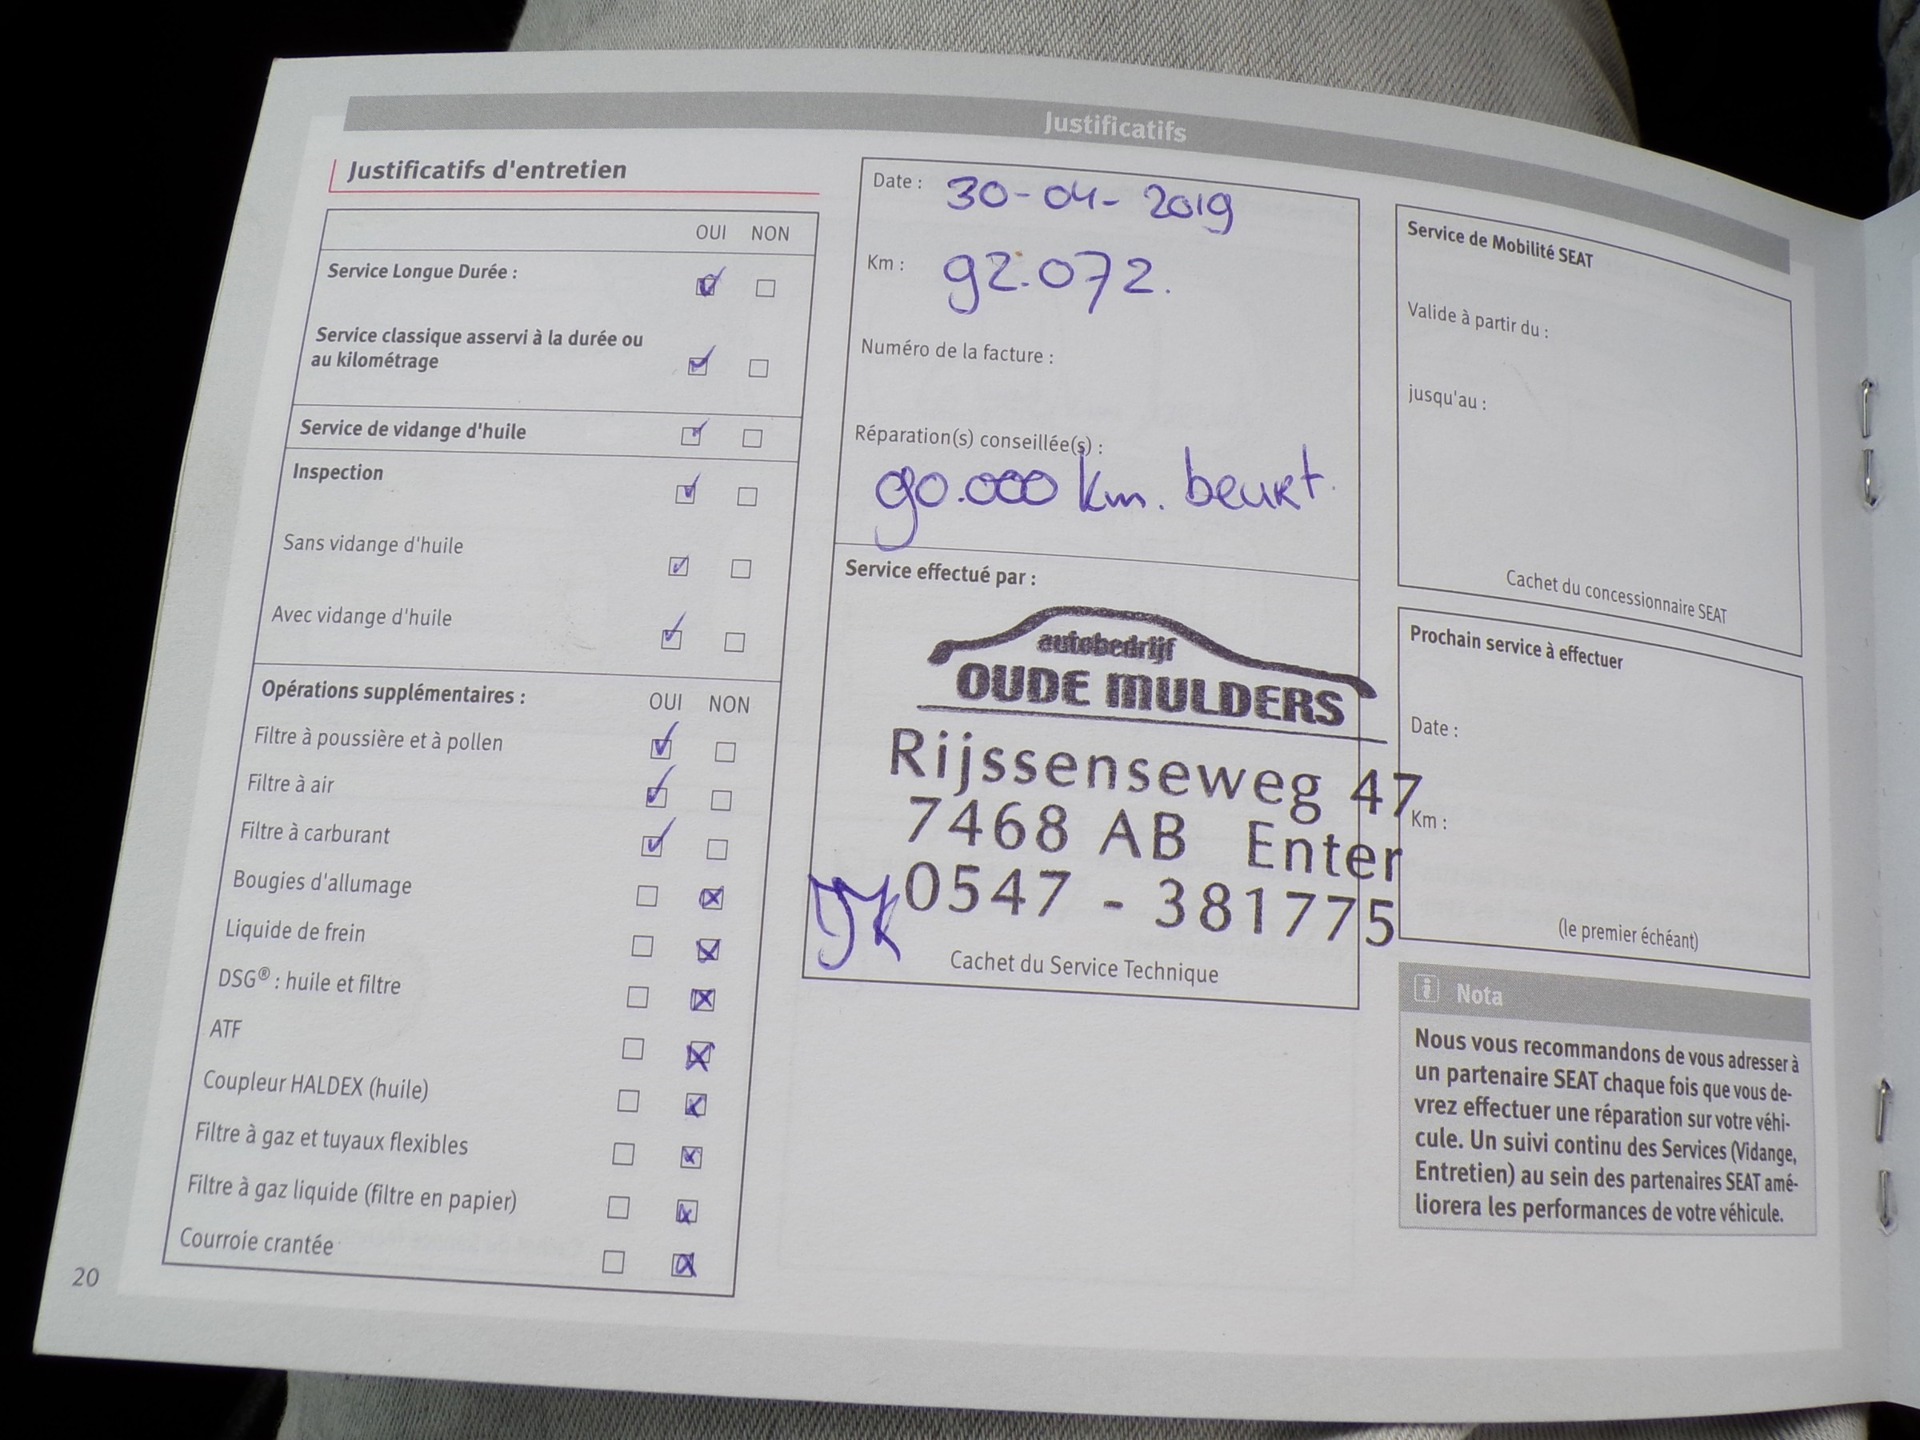 Justificatifs
Justificatifs d'entretien
OUI NON
Service Longue Durée :
Service classique asservi à la durée ou
au kilométrage
Service de vidange d'huile
Inspection
Sans vidange d'huile
Avec vidange d'huile
Opérations supplémentaires : OUI NON
Filtre à poussière et à pollen
Filtre à air
Filtre à carburant
Bougies d'allumage
Liquide de frein
DSG® : huile et filtre
ATF
Coupleur HALDEX (huile)
Filtre à gaz et tuyaux flexibles
Filtre à gaz liquide (filtre en papier)
Courroie crantée
20
Date : 30-04-2019
Km : 92.072.
Numéro de la facture :
Réparation(s) conseillée(s) :
90.000 km. beurt.
Service effectué par :
autobedrijf
OUDE MULDERS
Rijssenseweg 47
7468 AB Enter
0547 - 381775
Cachet du Service Technique
Service de Mobilité SEAT
Valide à partir du :
jusqu'au :
Cachet du concessionnaire SEAT
Prochain service à effectuer
Date :
Km :
(le premier échéant)
i Nota
Nous vous recommandons de vous adresser à
un partenaire SEAT chaque fois que vous de-
vrez effectuer une réparation sur votre véhi-
cule. Un suivi continu des Services (Vidange,
Entretien) au sein des partenaires SEAT amé-
liorera les performances de votre véhicule.